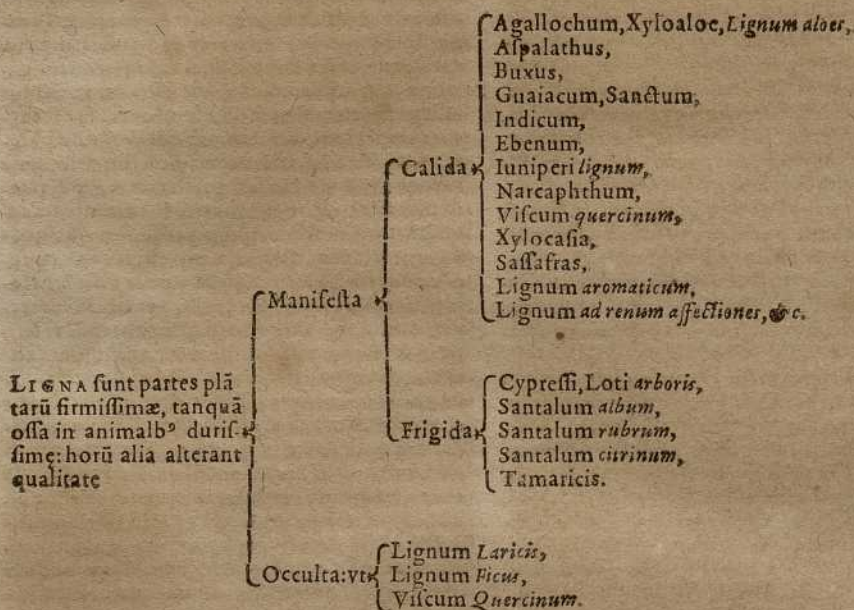 LIGNA ſunt partes plā
tarū firmiſſimæ, tanquā
oſſa in animalbꝰ duriſ-
ſimę: horū alia alterant
qualitate
Manifeſta
Calida
Agallochum, Xyloaloe, Lignum aloes,
Aſpalathus,
Buxus,
Guaiacum, Sanctum,
Indicum,
Ebenum,
Iuniperi lignum,
Narcaphthum,
Viſcum quercinum,
Xylocaſia,
Saſſafras,
Lignum aromaticum,
Lignum ad renum affectiones, &c.
Frigida
Cypreſſi, Loti arboris,
Santalum album,
Santalum rubrum,
Santalum citrinum,
Tamaricis.
Occulta: vt
Lignum Laricis,
Lignum Ficus,
Viſcum Quercinum.